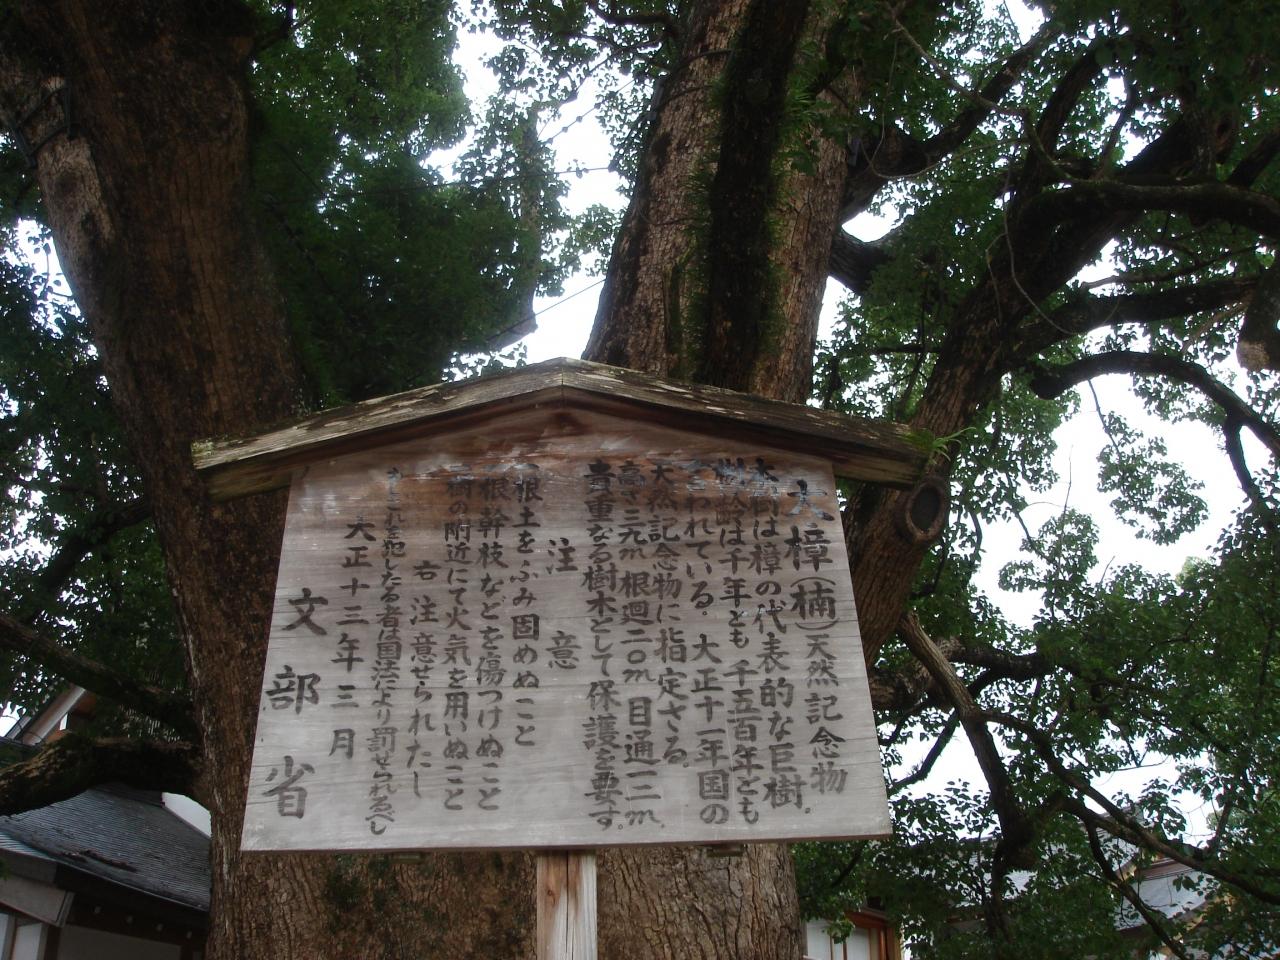 大樟(楠)天然記念物
本樹は樟の代表的な巨樹.
樹齢は千年とも千五百年とも
云われている。大正十一年国の
天然記念物に指定さる。
高さ三九m 根廻二〇m 目通一二m.
貴重なる樹木として保護を要す。
注意
一根土をふみ固めぬこと
一根幹枝などを傷つけぬこと
一樹の附近にて火気を用いぬこと
右注意せられたし
もしこれを犯したる者は国法により罰せられるべし
大正十三年三月
文部省